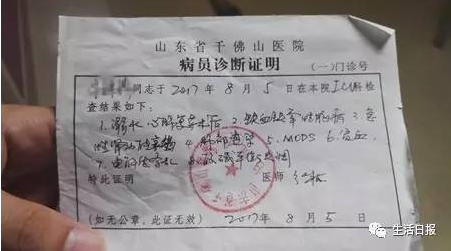 山东省千佛山医院
病员诊断证明 (一)门诊号
同志于2017年8月5日在本院ICU科检
查结果如下:
1.溺水 心肺复苏术后 2.缺血缺氧性脑病 3.急
4.肺部感染 5.MODS 6.贫血
7.电解质紊乱 8.
特此证明 医师
(如无公章,此证无效) 2017年8月5日
生活日报